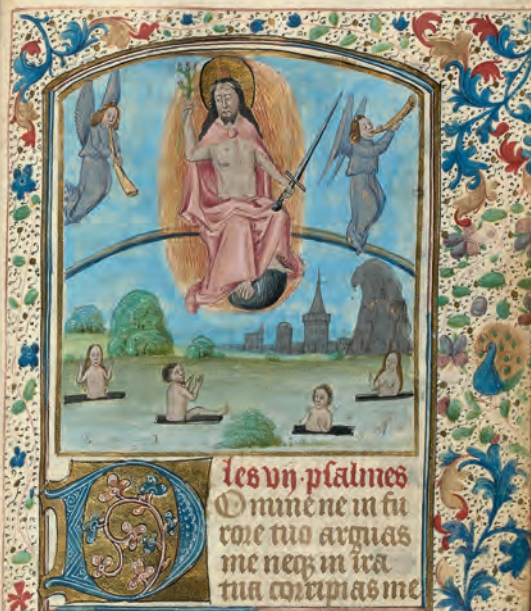 les vij · psalmes
Domine ne in fu
rore tuo arguas
me neqz in ira
tua corripias me